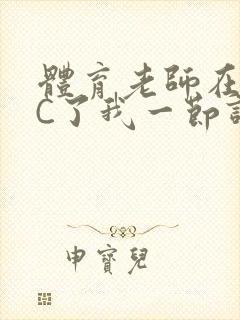 體育老師在
C了我一節
申寶兒